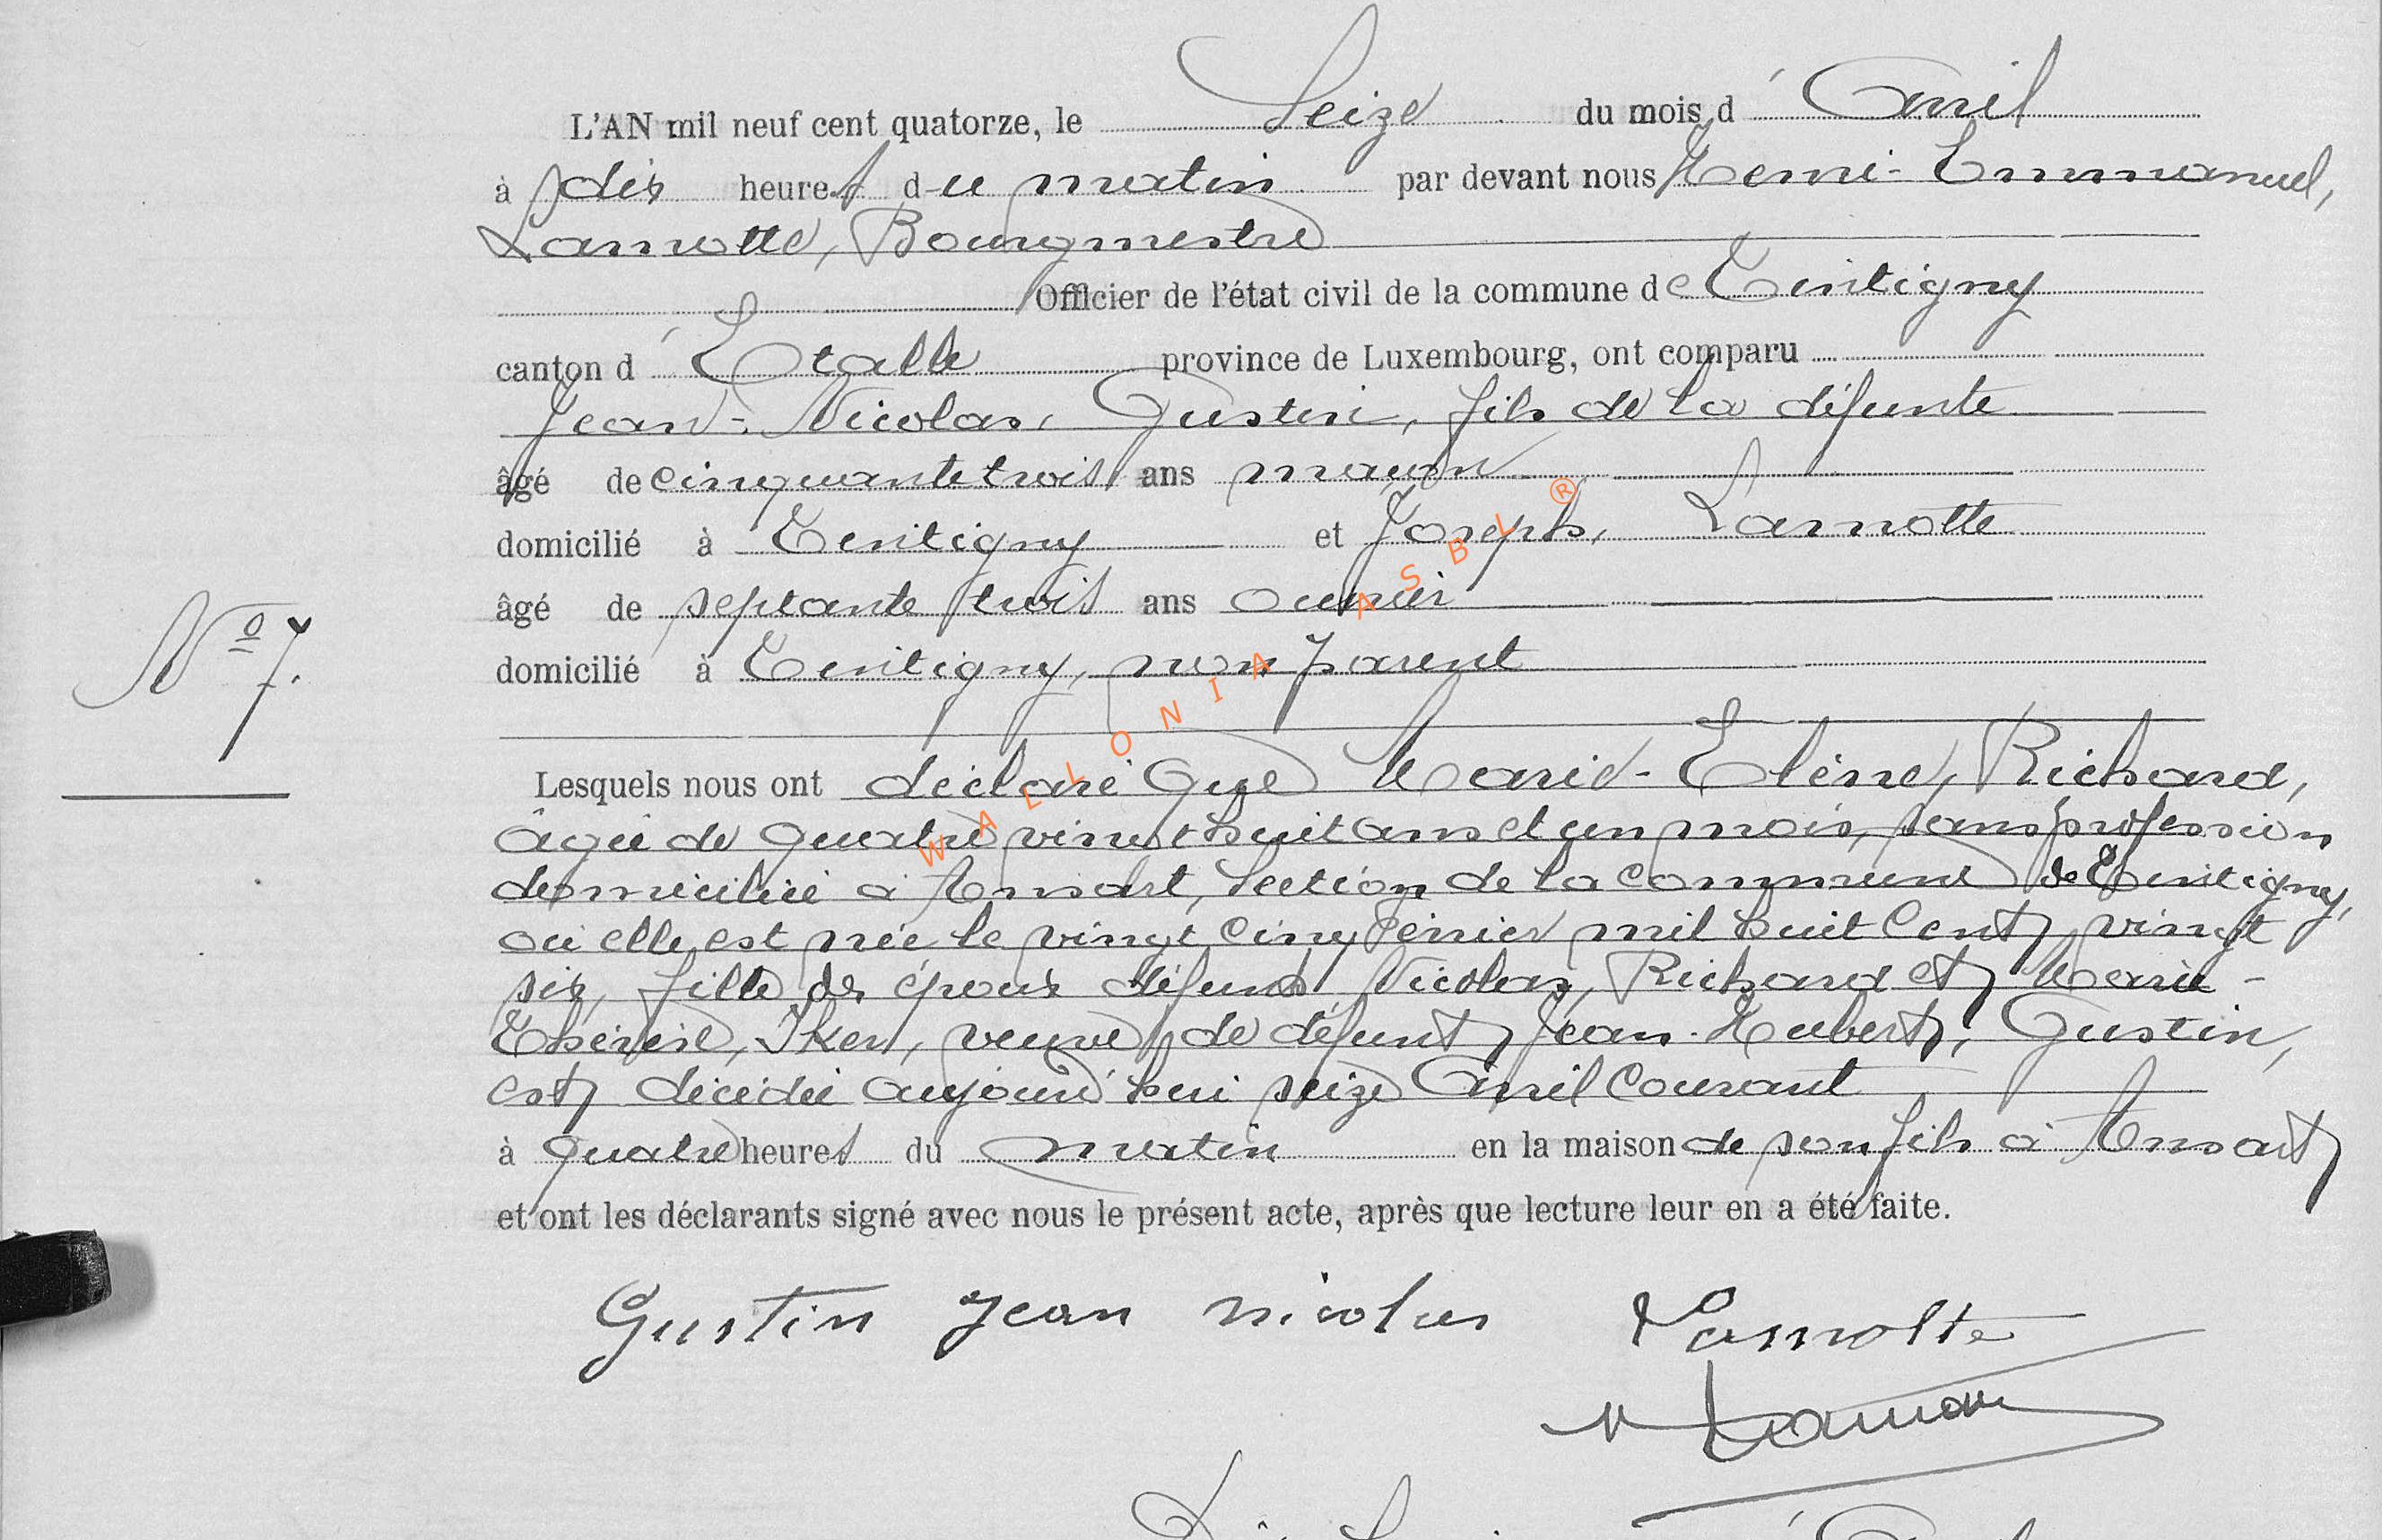 L'AN mil neuf cent quatorze, le Seize du mois d'Avril
à dix heures du matin par devant nous Henri-Emmanuel,
Lamotte, Bourgmestre
Officier de l'état civil de la commune de Tintigny
canton d'Etalle province de Luxembourg, ont comparu
Jean-Nicolas, Gustin, fils de la défunte
âgé de cinquante trois ans maçon
domicilié à Tintigny et Joseph, Lamotte
âgé de septante trois ans ouvrier
N° 7.
domicilié à Tintigny, non parent
Lesquels nous ont déclaré que Marie-Elène, Richard,
âgée de quatre vingt huit ans et un mois, sans profession
domiciliée à Ansart, Section de la commune de Tintigny,
où elle est née le vingt cinq février mil huit cent vingt
six, fille des époux défunts Nicolas, Richard et Marie-
Thérèse, Iker, veuve de défunt Jean-Hubert, Gustin,
est décédée aujourd'hui seize Avril courant
à quatre heures du matin en la maison de son fils à Ansart
et ont les déclarants signé avec nous le présent acte, après que lecture leur en a été faite.
Gustin Jean nicolas Lamotte
WALLONIA ASBL ®